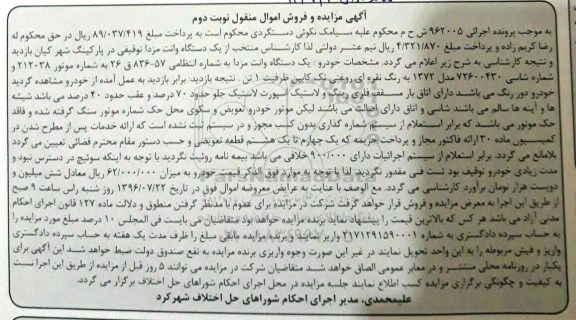 آگهی مزایده و فروش اموال منقول نوبت دوم
به موجب پرونده اجرائی ۹۶۲۰۰۵ ش ح م محکوم علیه سیامک نکوئی دستگردی محکوم است به پرداخت مبلغ ۸۹/۰۳۷/۴۱۹ ریال در حق محکوم له
رضا کریم زاده و پرداخت مبلغ ۴/۳۲۱/۸۷۰ ریال نیم عشر دولتی لذا کارشناس منتخب از یک دستگاه وانت مزدا توقیفی در پارکینگ شهر کیان بازدید
و نتیجه کارشناسی به شرح زیر اعلام می گردد. مشخصات خودرو : یک دستگاه وانت مزدا به شماره انتظامی ۵۷-۸۳۶ ق ۲۶ به شماره موتور ۲۱۲۰۳۸ و
شماره شاسی ۷۲۶۰۰۴۳۰ مدل ۱۳۷۲ به رنگ نقره ای روغنی تک کابین ظرفیت ۱ تن . نتیجه بازدید: برابر بازدید به عمل آمده از خودرو مشاهده گردید
خودرو دور رنگ می باشد دارای اتاق بار مسقف فلزی رینگ و لاستیک اسپورت لاستیک جلو حدود ۷۰ درصد و عقب حدود ۴۰ درصد می باشد شیشه
ها و آینه ها سالم می باشند شاسی و اتاق دارای اصالت می باشد لیکن موتور خودرو تعویض و سکوی محل حک شماره موتور سنگ گرفته شده و فاقد
حک موتور می باشد که برابر استعلام از سیستم شماره گذاری بدون کسب مجوز و در سیستم ثبت نشده است که ارائه خدمات پس از مطرح شدن در
کمیسیون ماده ۳۰ ارائه فاکتور مجاز و پرداخت جریمه که یک چهارم تا یک هشتم قطعه تعویضی و حسب دستور مقام محترم قضائی تعیین می گردد
بلامانع می گردد. برابر استعلام از سیستم اجرائیات دارای ۹۰۰/۰۰۰ خلافی می باشد بیمه نامه روئیت نگردید با توجه به اینکه سوئیچ در دسترس نبود و
مدت زیادی خودرو توقیف بود تست فنی مقدور نگردید لذا با توجه به موارد فوق الذکر قیمت خودرو به میزان ۶۲/۰۰۰/۰۰۰ ریال معادل شش میلیون و
دویست هزار تومان برآورد کارشناسی می گردد. مع الوصف با عنایت به عرایض معروضه اموال فوق در تاریخ ۱۳۹۶/۰۷/۲۲ روز شنبه راس ساعت ۹ صبح
از طریق این اجرا به معرض مزایده و فروش قرار خواهد گرفت شرکت در مزایده برای عموم با مدنظر گرفتن منطوق و دلالت ماده ۱۲۷ قانون اجرای احکام
مدنی آزاد می باشد هر کس که بالاترین قیمت را پیشنهاد نماید برنده مزایده خواهد بود متقاضیان می بایست فی المجلس ۱۰ درصد مبلغ مزایده را
به حساب سپرده دادگستری به شماره ۲۱۷۱۲۹۱۵۹۰۰۰۱ واریز نمایند و برنده مزایده مابقی مبلغ را ظرف مدت یک هفته به حساب سپرده دادگستری
واریز و فیش مربوطه را به این واحد تحویل نمایند در غیر این صورت وجوه واریزی برنده مزایده به نفع صندوق دولت ضبط خواهد شد این آگهی برای
یکبار در روزنامه محلی منتشر و در معابر عمومی الصاق خواهد شد متقاضیان شرکت در مزایده می توانند ۵ روز قبل از مزایده از طریق این اجرا نسبت
به کیفیت و چگونگی برگزاری مزایده کسب اطلاع نمایند جلسه مزایده در محل اجرای احکام شوراهای حل اختلاف برگزار می گردد.
علیمحمدی، مدیر اجرای احکام شوراهای حل اختلاف شهرکرد